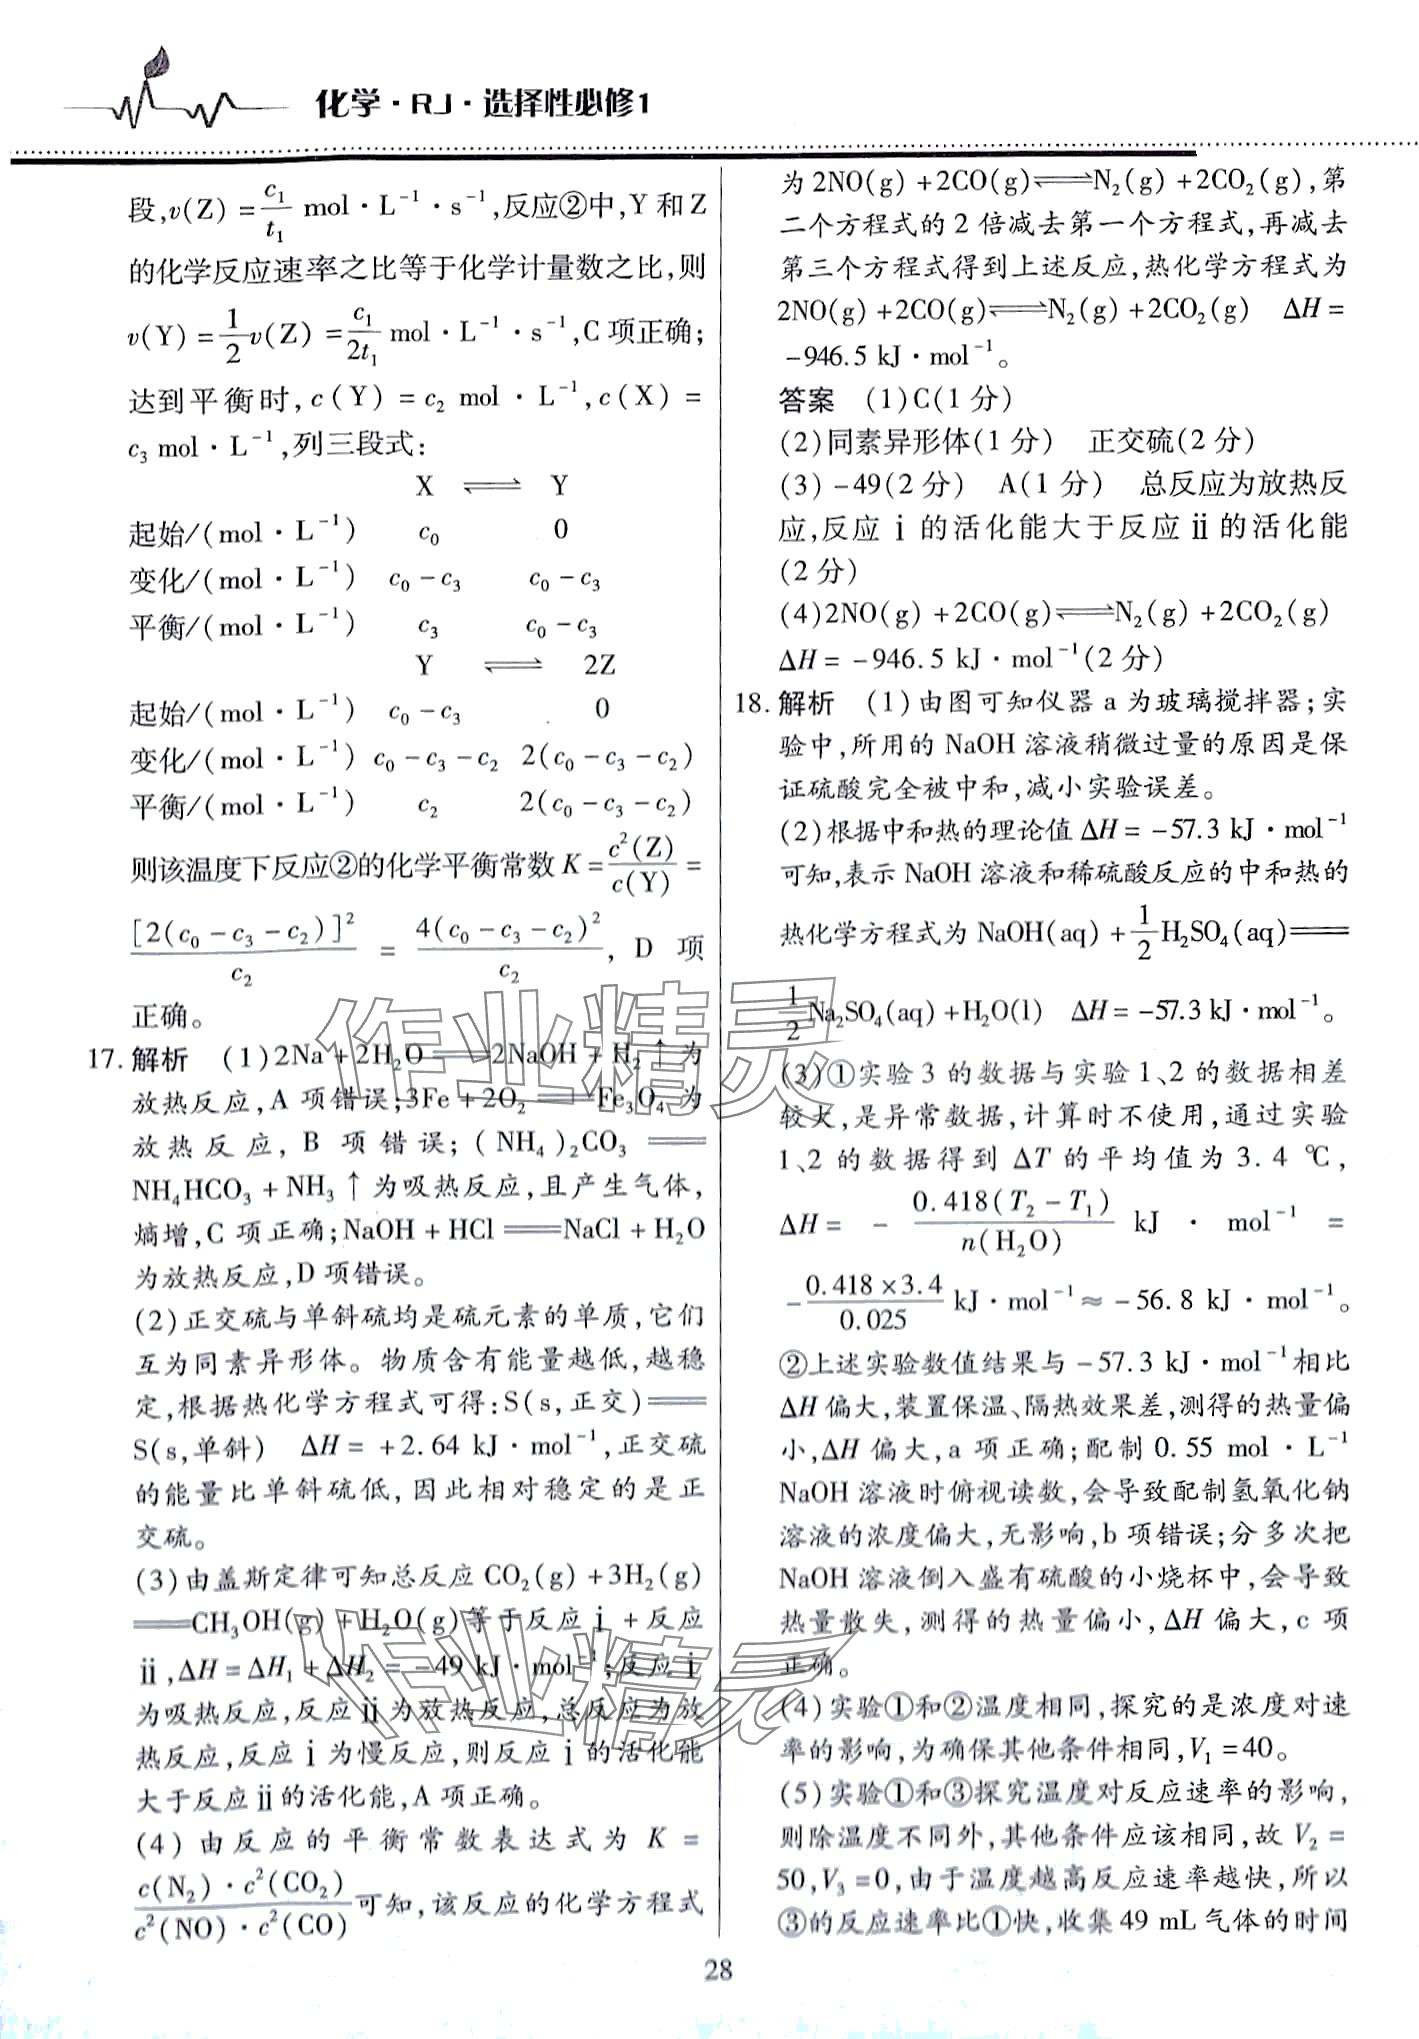 化学·RJ·选择性必修1
段,v(Z)=c₁/t₁ mol·L⁻¹·s⁻¹,反应②中,Y和Z
的化学反应速率之比等于化学计量数之比,则
v(Y)=1/2v(Z)=c₁/2t₁ mol·L⁻¹·s⁻¹,C项正确;
达到平衡时,c(Y)=c₂ mol·L⁻¹,c(X)=
c₃ mol·L⁻¹,列三段式:
X ⇌ Y
起始/(mol·L⁻¹) c₀ 0
变化/(mol·L⁻¹) c₀-c₃ c₀-c₃
平衡/(mol·L⁻¹) c₃ c₀-c₃
Y ⇌ 2Z
起始/(mol·L⁻¹) c₀-c₃ 0
变化/(mol·L⁻¹) c₀-c₃-c₂ 2(c₀-c₃-c₂)
平衡/(mol·L⁻¹) c₂ 2(c₀-c₃-c₂)
则该温度下反应②的化学平衡常数K=c²(Z)/c(Y)=
[2(c₀-c₃-c₂)]²/c₂=4(c₀-c₃-c₂)²/c₂,D项
正确。
17.解析 (1)2Na+2H₂O══2NaOH+H₂↑为
放热反应,A项错误;3Fe+2O₂══Fe₃O₄为
放热反应,B项错误;(NH₄)₂CO₃══
NH₄HCO₃+NH₃↑为吸热反应,且产生气体,
熵增,C项正确;NaOH+HCl══NaCl+H₂O
为放热反应,D项错误。
(2)正交硫与单斜硫均是硫元素的单质,它们
互为同素异形体。物质含有能量越低,越稳
定,根据热化学方程式可得:S(s,正交)══
S(s,单斜) ΔH=+2.64 kJ·mol⁻¹,正交硫
的能量比单斜硫低,因此相对稳定的是正
交硫。
(3)由盖斯定律可知总反应CO₂(g)+3H₂(g)
══CH₃OH(g)+H₂O(g)等于反应ⅰ+反应
ⅱ,ΔH=ΔH₁+ΔH₂=-49 kJ·mol⁻¹;反应ⅰ
为吸热反应,反应ⅱ为放热反应,总反应为放
热反应,反应ⅰ为慢反应,则反应ⅰ的活化能
大于反应ⅱ的活化能,A项正确。
(4)由反应的平衡常数表达式为K=
c(N₂)·c²(CO₂)/c²(NO)·c²(CO)可知,该反应的化学方程式
为2NO(g)+2CO(g)⇌N₂(g)+2CO₂(g),第
二个方程式的2倍减去第一个方程式,再减去
第三个方程式得到上述反应,热化学方程式为
2NO(g)+2CO(g)⇌N₂(g)+2CO₂(g) ΔH=
-946.5 kJ·mol⁻¹。
答案 (1)C(1分)
(2)同素异形体(1分) 正交硫(2分)
(3)-49(2分) A(1分) 总反应为放热反
应,反应ⅰ的活化能大于反应ⅱ的活化能
(2分)
(4)2NO(g)+2CO(g)⇌N₂(g)+2CO₂(g)
ΔH=-946.5 kJ·mol⁻¹(2分)
18.解析 (1)由图可知仪器a为玻璃搅拌器;实
验中,所用的NaOH溶液稍微过量的原因是保
证硫酸完全被中和,减小实验误差。
(2)根据中和热的理论值ΔH=-57.3 kJ·mol⁻¹
可知,表示NaOH溶液和稀硫酸反应的中和热的
热化学方程式为NaOH(aq)+1/2H₂SO₄(aq)══
1/2Na₂SO₄(aq)+H₂O(l) ΔH=-57.3 kJ·mol⁻¹。
(3)①实验3的数据与实验1、2的数据相差
较大,是异常数据,计算时不使用,通过实验
1、2的数据得到ΔT的平均值为3.4 ℃,
ΔH=-0.418(T₂-T₁)/n(H₂O) kJ·mol⁻¹=
-0.418×3.4/0.025 kJ·mol⁻¹≈-56.8 kJ·mol⁻¹。
②上述实验数值结果与-57.3 kJ·mol⁻¹相比
ΔH偏大,装置保温、隔热效果差,测得的热量偏
小,ΔH偏大,a项正确;配制0.55 mol·L⁻¹
NaOH溶液时俯视读数,会导致配制氢氧化钠
溶液的浓度偏大,无影响,b项错误;分多次把
NaOH溶液倒入盛有硫酸的小烧杯中,会导致
热量散失,测得的热量偏小,ΔH偏大,c项
正确。
(4)实验①和②温度相同,探究的是浓度对速
率的影响,为确保其他条件相同,V₁=40。
(5)实验①和③探究温度对反应速率的影响,
则除温度不同外,其他条件应该相同,故V₂=
50,V₃=0,由于温度越高反应速率越快,所以
③的反应速率比①快,收集49 mL气体的时间
28
作业精灵
作业精灵